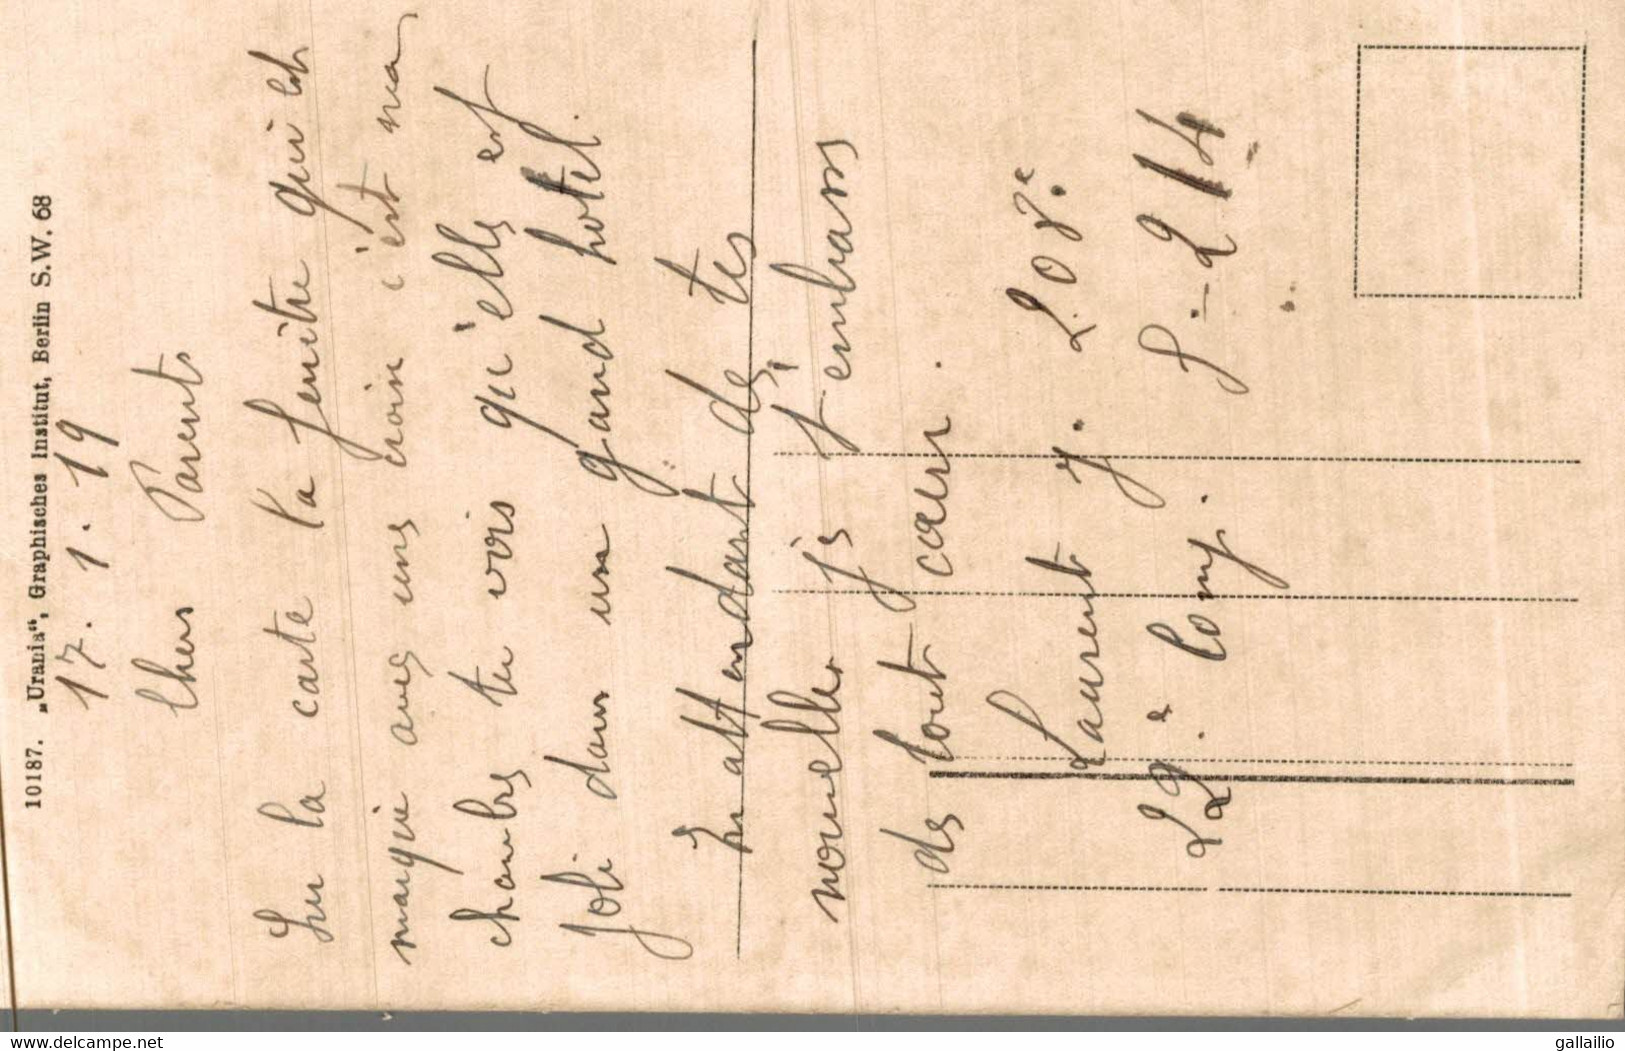 10187. „Urania“, Graphisches Institut, Berlin S.W. 68
17. 1. 19
Chers Parents
Sur la carte la fenêtre qui est
marquè avec une croin c'est ma
chambre tu vois qu'elle est
joli dans un grand hotel.
En attendant de tes
nouvelles je t'embrass
de tout cœur.
Laurent J. 208e
22e Comp. S-L 114
www.delcampe.net
gallailio